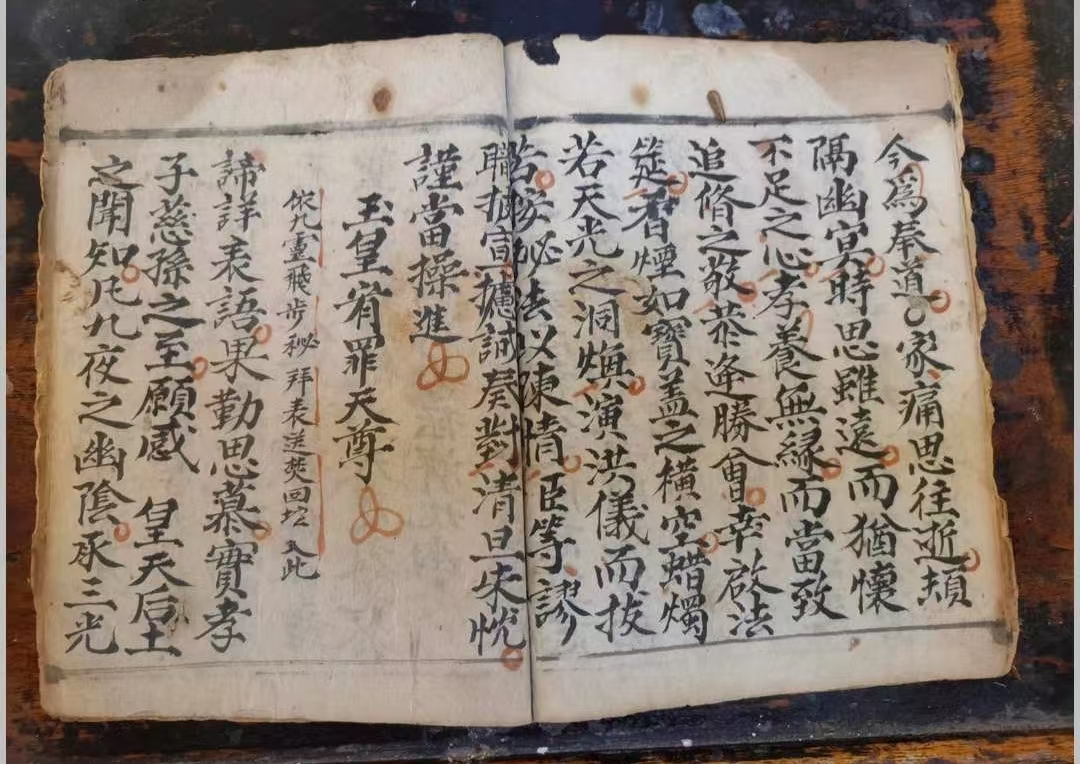 今為奉道○家痛思往逝頓
隔幽冥時思雖遠而猶懷
不足之心孝養無緣而當致
追脩之敬恭逢勝會幸啟法
筵香煙如寶蓋之橫空蠟燭
若天光之洞煥演洪儀而拔
若按必法以陳情臣等謬
職揁當攄誠奏對清旦朱忱
謹當操進
玉皇宥罪天尊
依九靈飛步秘拜表送焚回坛入此
諦詳表語果勤思慕實孝
子慈孫之至願感皇天后土
之聞知凡九夜之幽陰承三光